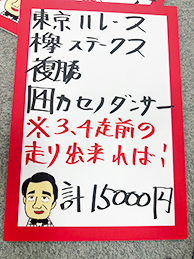 東京11レース
欅ステークス
複勝
囲カセノダンサー
※3、4走前の
走り出来れば!
計15000円